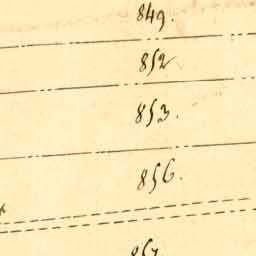 849.
852
853.
856.